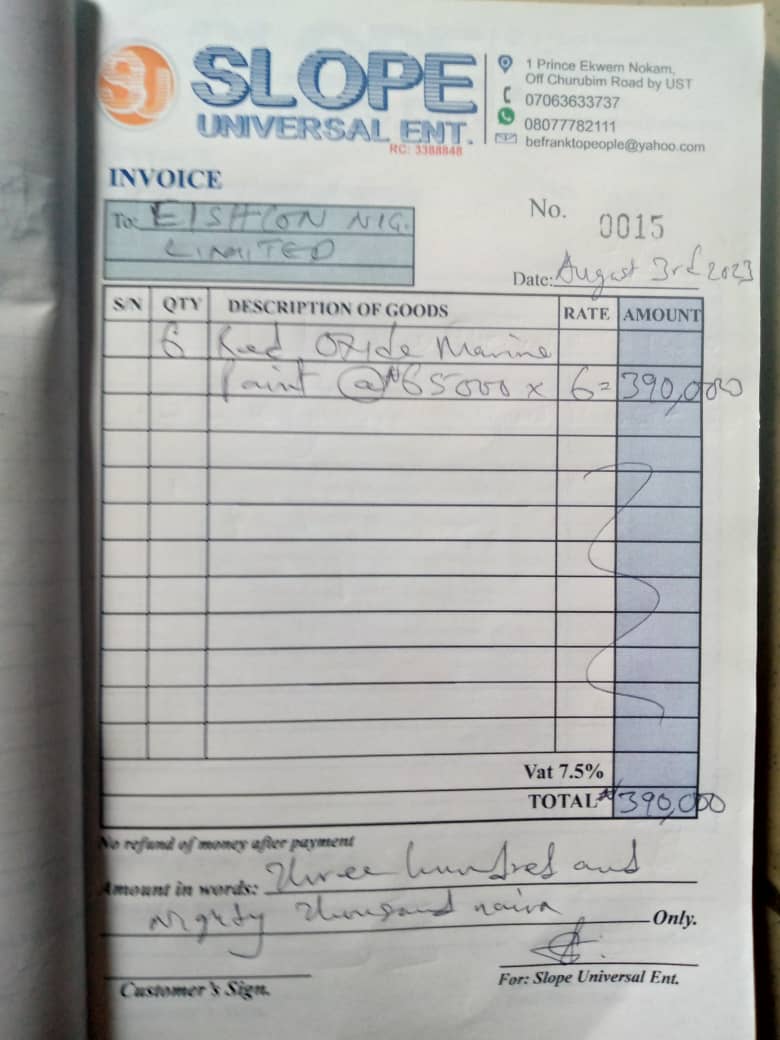 SU
SLOPE
UNIVERSAL ENT.
RC: 3388848
1 Prince Ekwem Nokam,
Off Churubim Road by UST
07063633737
08077782111
befranktopeople@yahoo.com
INVOICE
No. 0015
To: EISHCON NIG.
LIMITED
Date: August 3rd 2023
S/N QTY DESCRIPTION OF GOODS RATE AMOUNT
6 Red Oxide Marine
Paint @ ₦65000 x 6 = 390,000
Vat 7.5%
TOTAL ₦390,000
No refund of money after payment
Amount in words: Three hundred and
Nighty thousand naira Only.
Customer's Sign.
For: Slope Universal Ent.